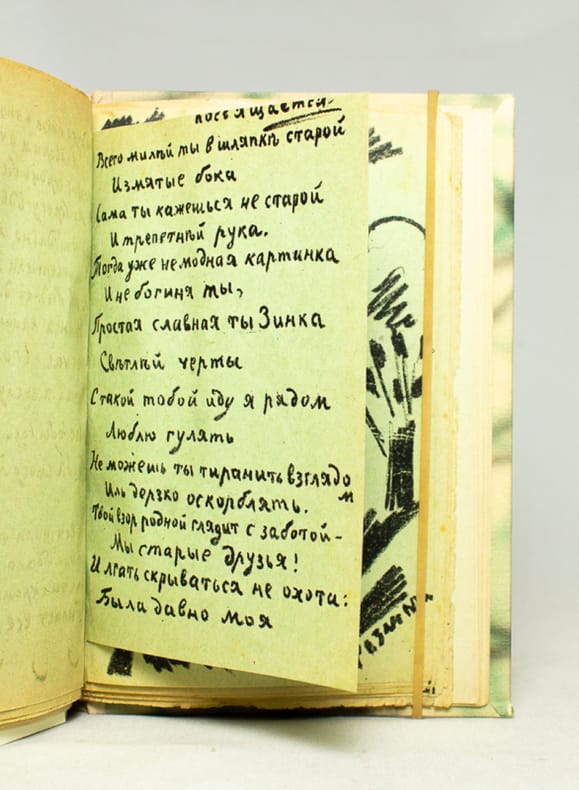 посвящается
Всего милѣй ты в шляпкѣ старой
Измятые бока
Сама ты кажешься не старой
И трепетнѣй рука.
Тогда уже не модная картинка
И не богиня ты,
Простая славная ты Зинка
Свѣтлѣй черты
С такой тобой иду я рядом
Люблю гулять
Не можешь ты тиранить взглядом
Иль дерзко оскорблять.
Твой взор родной глядит с заботой-
Мы старые друзья!
И лгать скрываться не охота:
Была давно моя